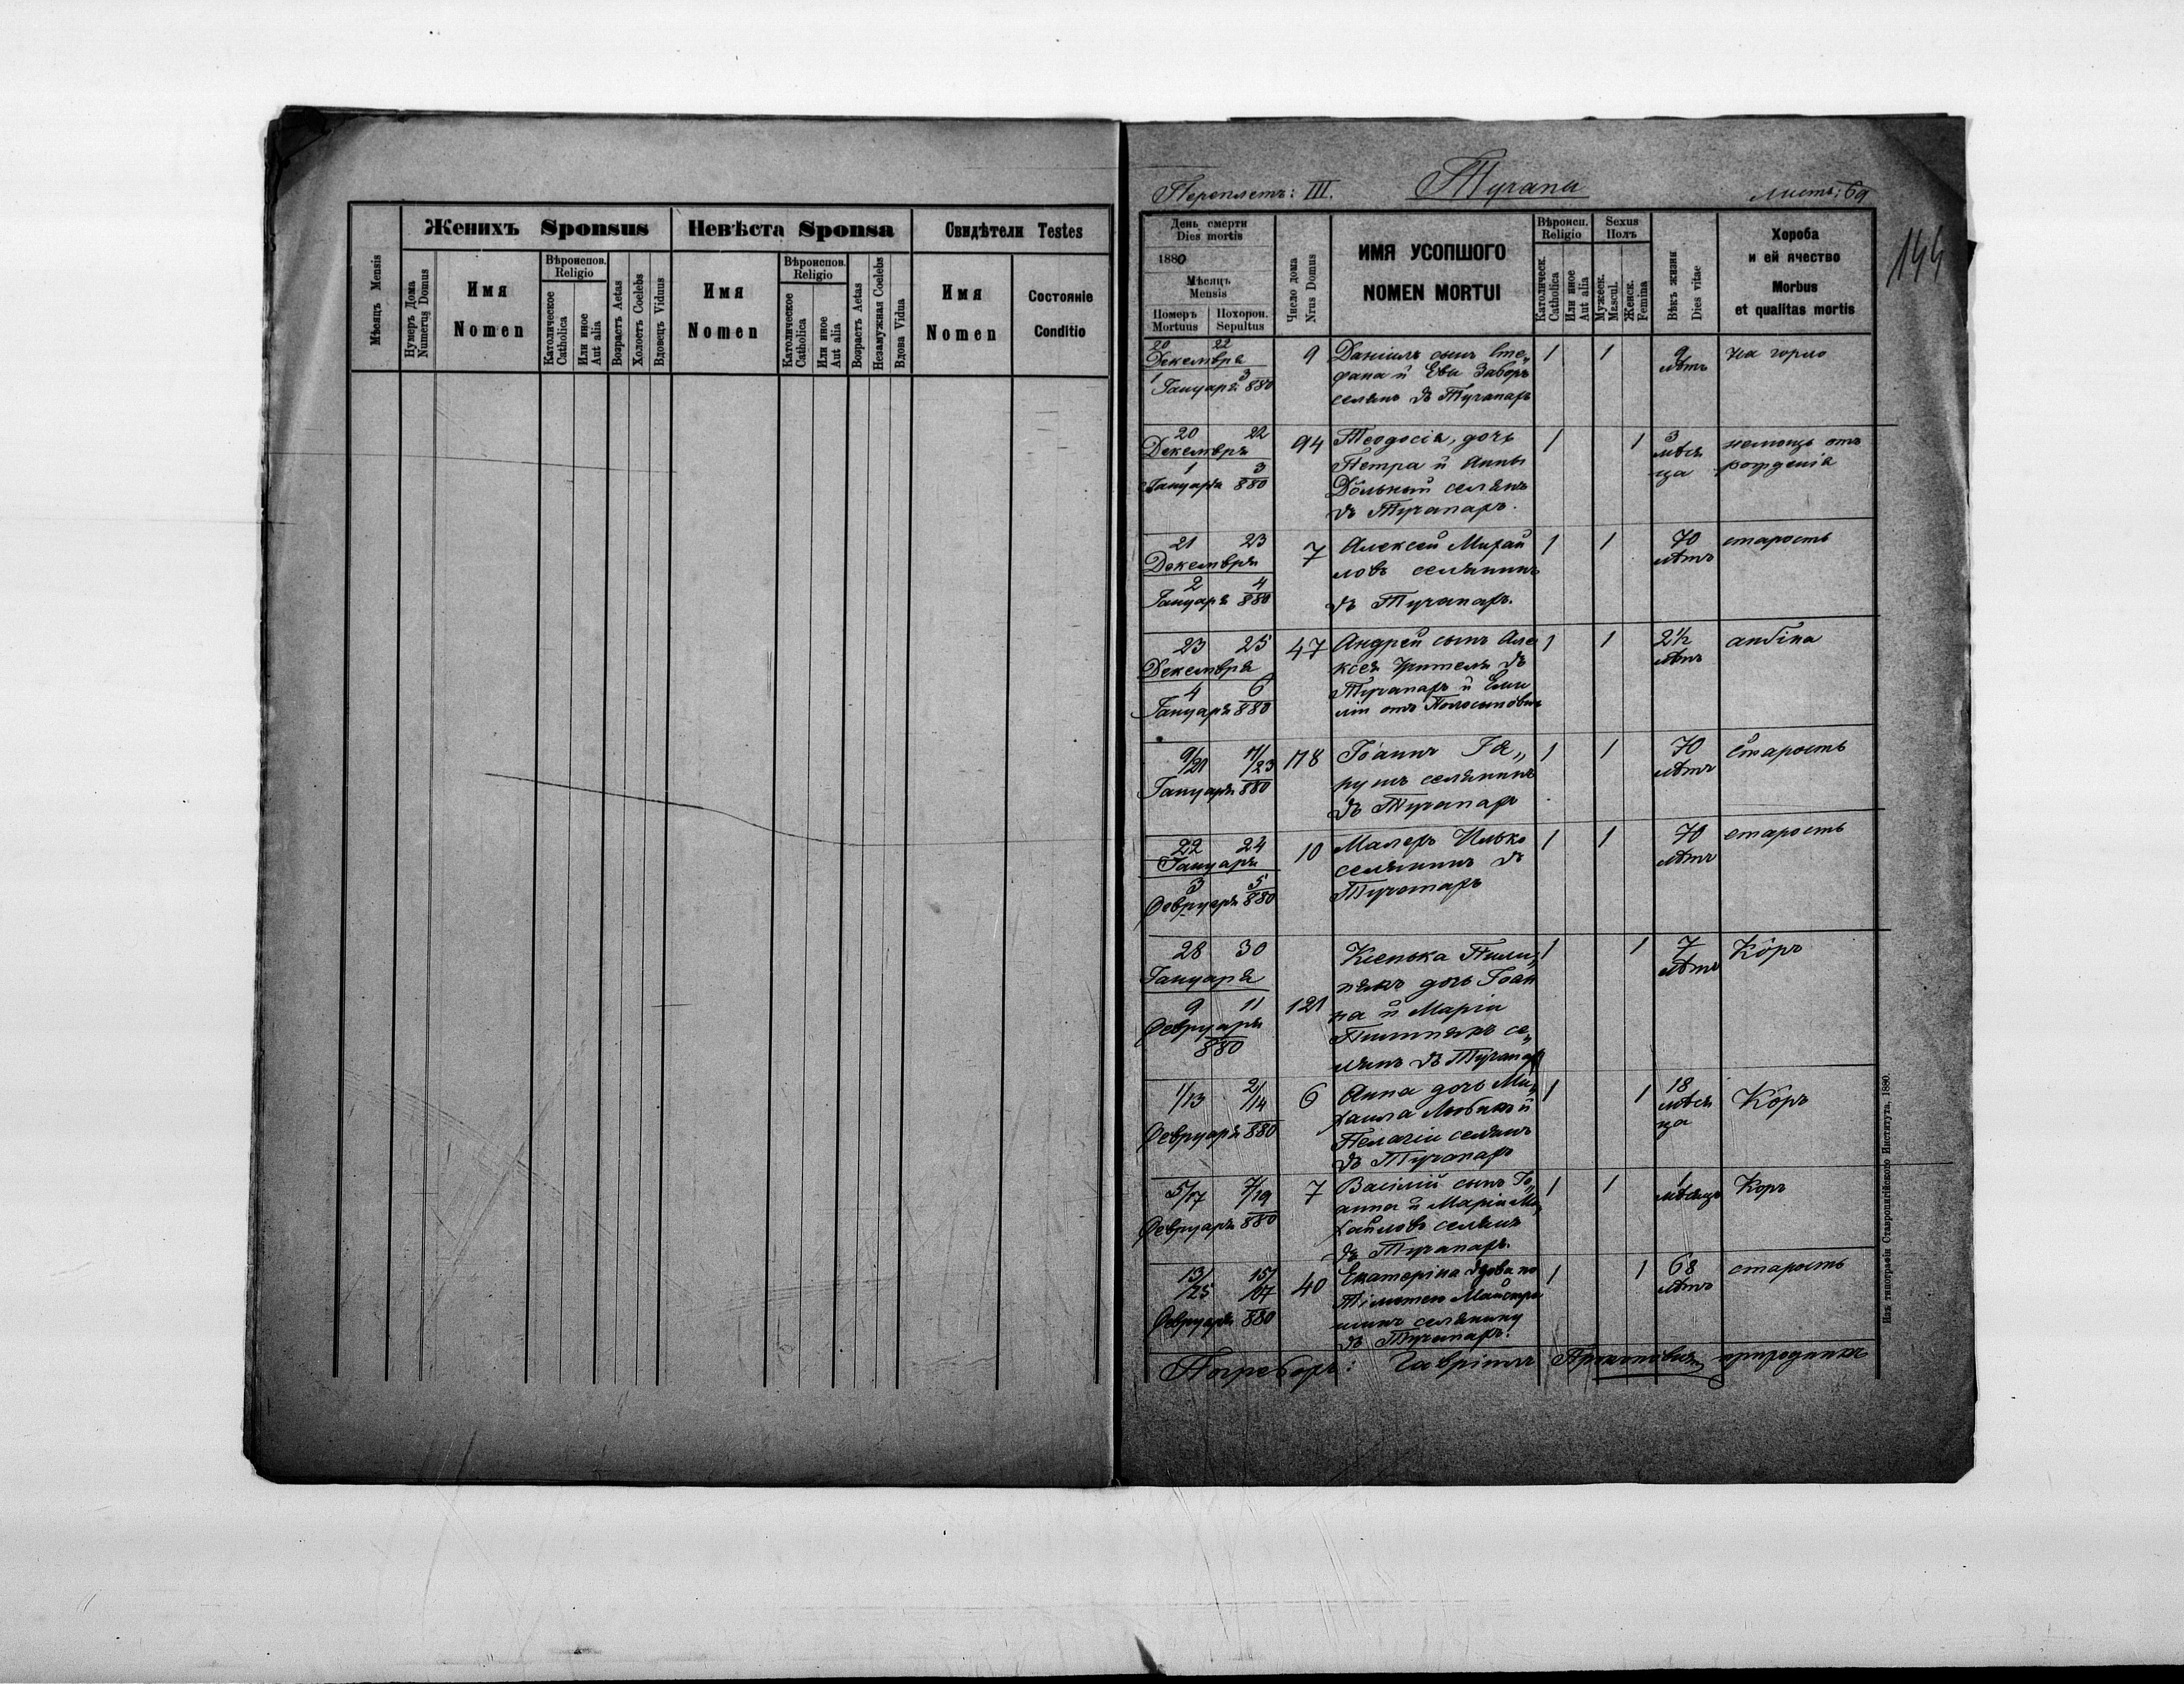 Женихъ Sponsus
Невѣста Sponsa
Свидѣтели Testes
Мѣсяцъ Mensis
Нумеръ Дома
Numerus Domus
Имя
Nomen
Вѣроиспов.
Religio
Католическое
Catholica
Или иное
Aut alia
Возрастъ Aetas
Холостъ Coelebs
Вдовецъ Viduus
Имя
Nomen
Вѣроиспов.
Religio
Католическое
Catholica
Или иное
Aut alia
Возрастъ Aetas
Незамужная Coelebs
Вдова Vidua
Имя
Nomen
Состояніе
Conditio
Переплетъ: III.
Тучапы
Листъ: 69
144
День смерти
Dies mortis
1880
Мѣсяцъ
Mensis
Померъ
Mortuus
Похорон.
Sepultus
Число дома
Nrus Domus
ИМЯ УСОПШОГО
NOMEN MORTUI
Вѣроисп.
Religio
Католическ.
Catholica
Или иное
Aut alia
Sexus
Полъ
Мужеск.
Mascul.
Женск.
Femina
Вѣкъ жизни
Dies vitae
Хороба
и ей ячество
Morbus
et qualitas mortis
20 22
Декемвра
1 3
Іануара 880
9
Даніилъ сынъ Сте„
фана и Евы
селянъ въ Тучапахъ
1 1
9
лѣтъ
на горло
20 22
Декемвра
1 3
Іануара 880
94
Теодосіа, дочь
Петра и Анны
Дольный селянъ
въ Тучапахъ.
1 1
3
мѣся
ца
немощь отъ
рожденія
21 23
Декемвра
2 4
Іануара 880
7
Алексей Михай
ловъ селянинъ
въ Тучапахъ.
1 1
70
лѣтъ
старость
23 25
Декемвра
4 6
Іануара 880
47
Андрей сынъ Але
ксея Учителя въ
Тучапахъ и Еми
ліи отъ
1 1
2½
лѣтъ
ангіна
9/21 11/23
Іануара 880
118
Іоаннъ
селянинъ
въ Тучапахъ
1 1
70
лѣтъ
старость
22 24
Іануара
3 5
Февруара 880
10
Малеръ Илько
селянинъ въ
Тучапахъ
1 1
70
лѣтъ
старость
28 30
Іануара
9 11
Февруара
880
121
Ксенька Пили„
пякъ дочь Іоан
на и Маріи
Пилипякъ се„
лянъ въ Тучапахъ
1 1
7
лѣтъ
Кôръ
1/13 2/14
Февруара 880
6
Анна дочь Ми„
хаила и
Пелагіи селянъ
въ Тучапахъ
1 1
18
мѣся
ца
Кôръ
5/17 7/19
Февруара 880
7
Василій сынъ Іо„
анна и Маріи Ми„
хайловъ селянъ
въ Тучапахъ.
1 1
1
мѣсяцъ
Коръ
13/25 15/27
Февруара 880
40
Екатеріна вдова по
Тімотею
селянину
въ Тучапахъ.
1 1
68
лѣтъ
старость
Погребохъ: Гавріилъ Прокоповичъ
Изъ типографіи Ставропигійского Института, 1880.